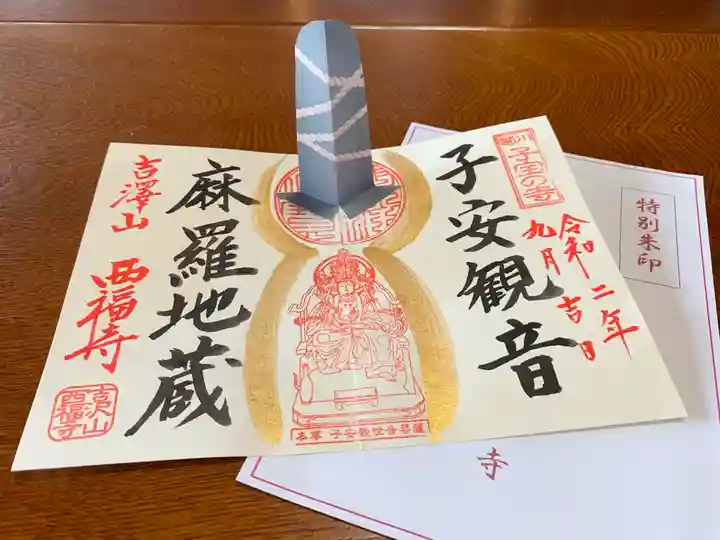 子宝の寺
令和二年
九月吉日
子安観音
本尊 子安観世音菩薩
麻羅地蔵
吉澤山 西福寺
吉沢山
西福寺
特別朱印
寺